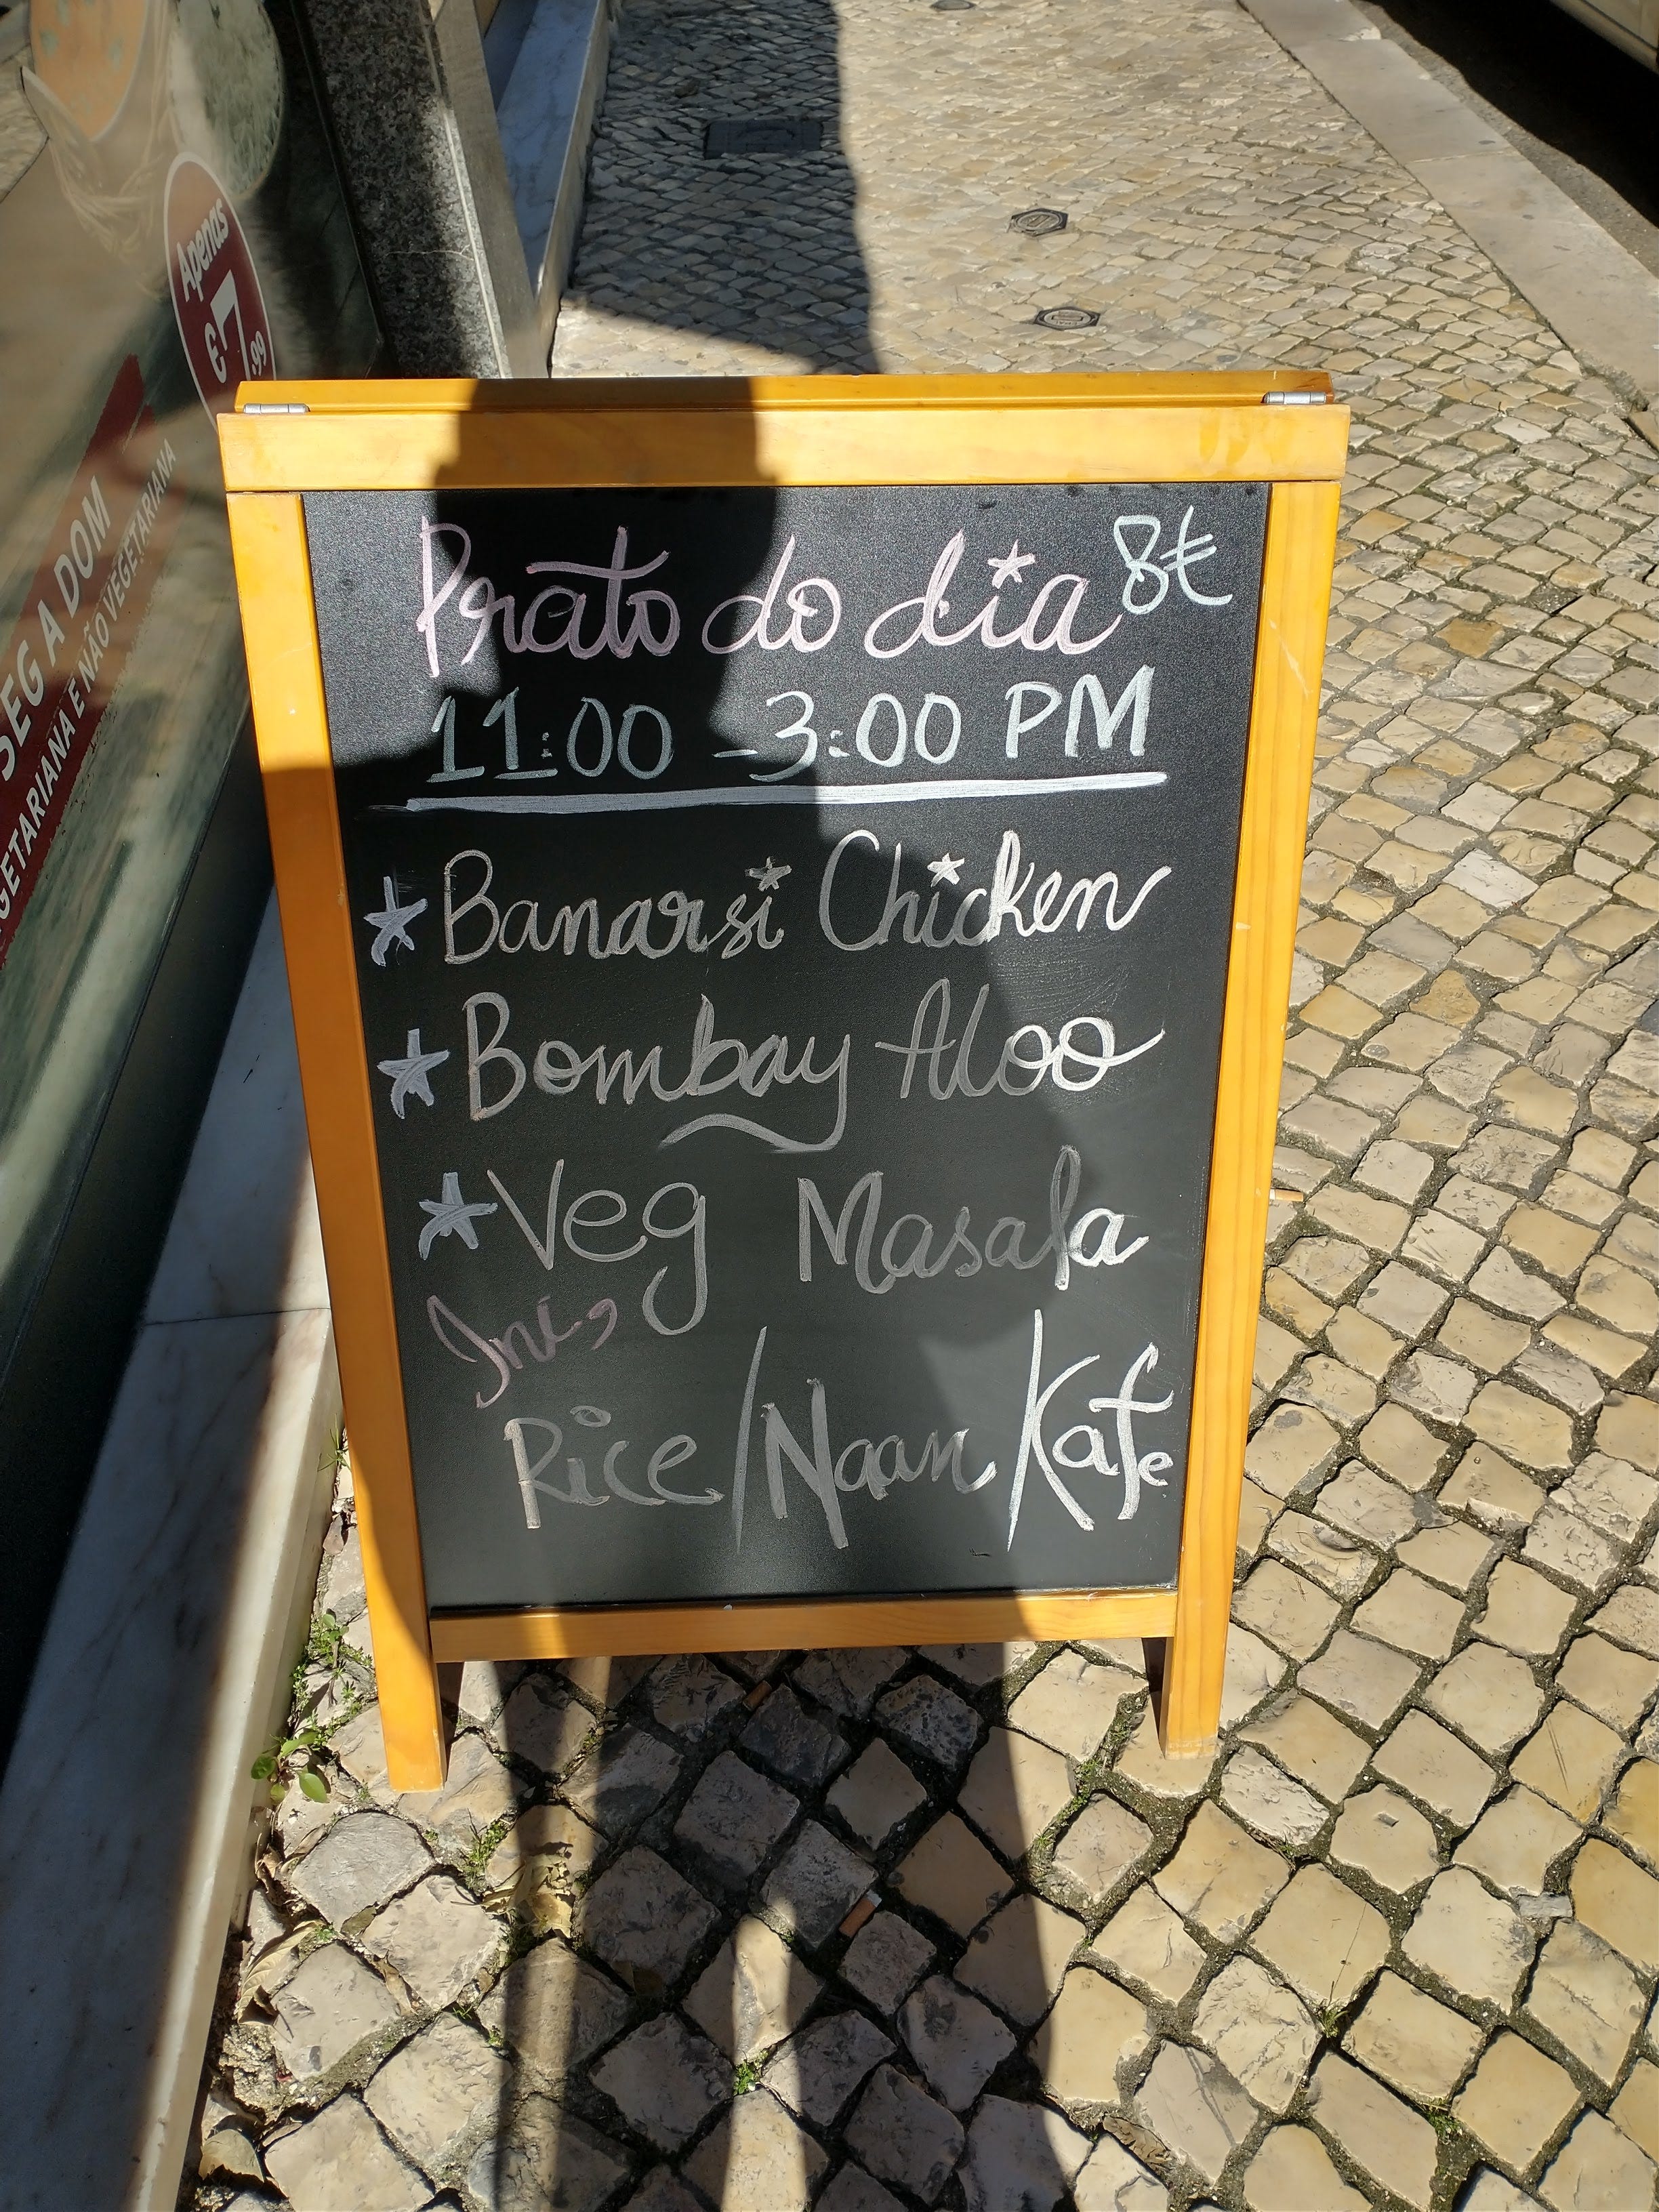 Apenas
€7,99
SEG A DOM
GETARIANA E NÃO VEGETARIANA
Prato do dia 8€
11:00 - 3:00 PM
Banarsi Chicken
Bombay Aloo
Veg Masala
Inc,
Rice/Naan/Kafe